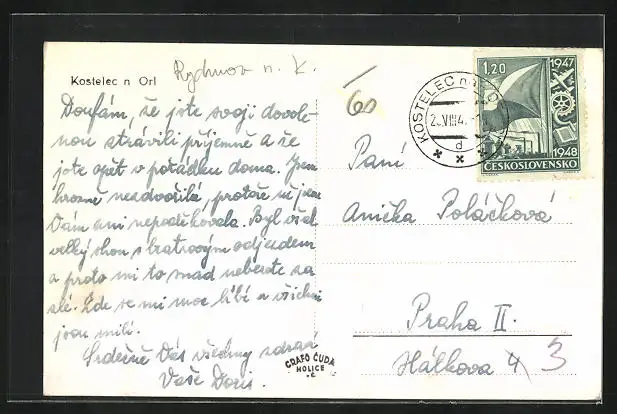 Kostelec n Orl
Rychnov n. K.
Doufám, že jste svoji dovole-
nou strávili příjemně a že
jste opět v pořádku doma. Jsem
hrozně nezdvořilá, protože už jsem
Vám ani nepoděkovala. Byl však
velký shon s bratrovým odjezdem
a proto mi to snad neberete za
zlé. Zde se mi moc líbí a všichni
jsou milí.
Srdečně Vás všechny zdraví
Vaše Doris.
60
KOSTELEC
d
1.20
1947
1948
ČESKOSLOVENSKO
Paní
Anička Poláčková
Praha II.
Hálkova 4 3
GRAFO ČUDA
HOLICE